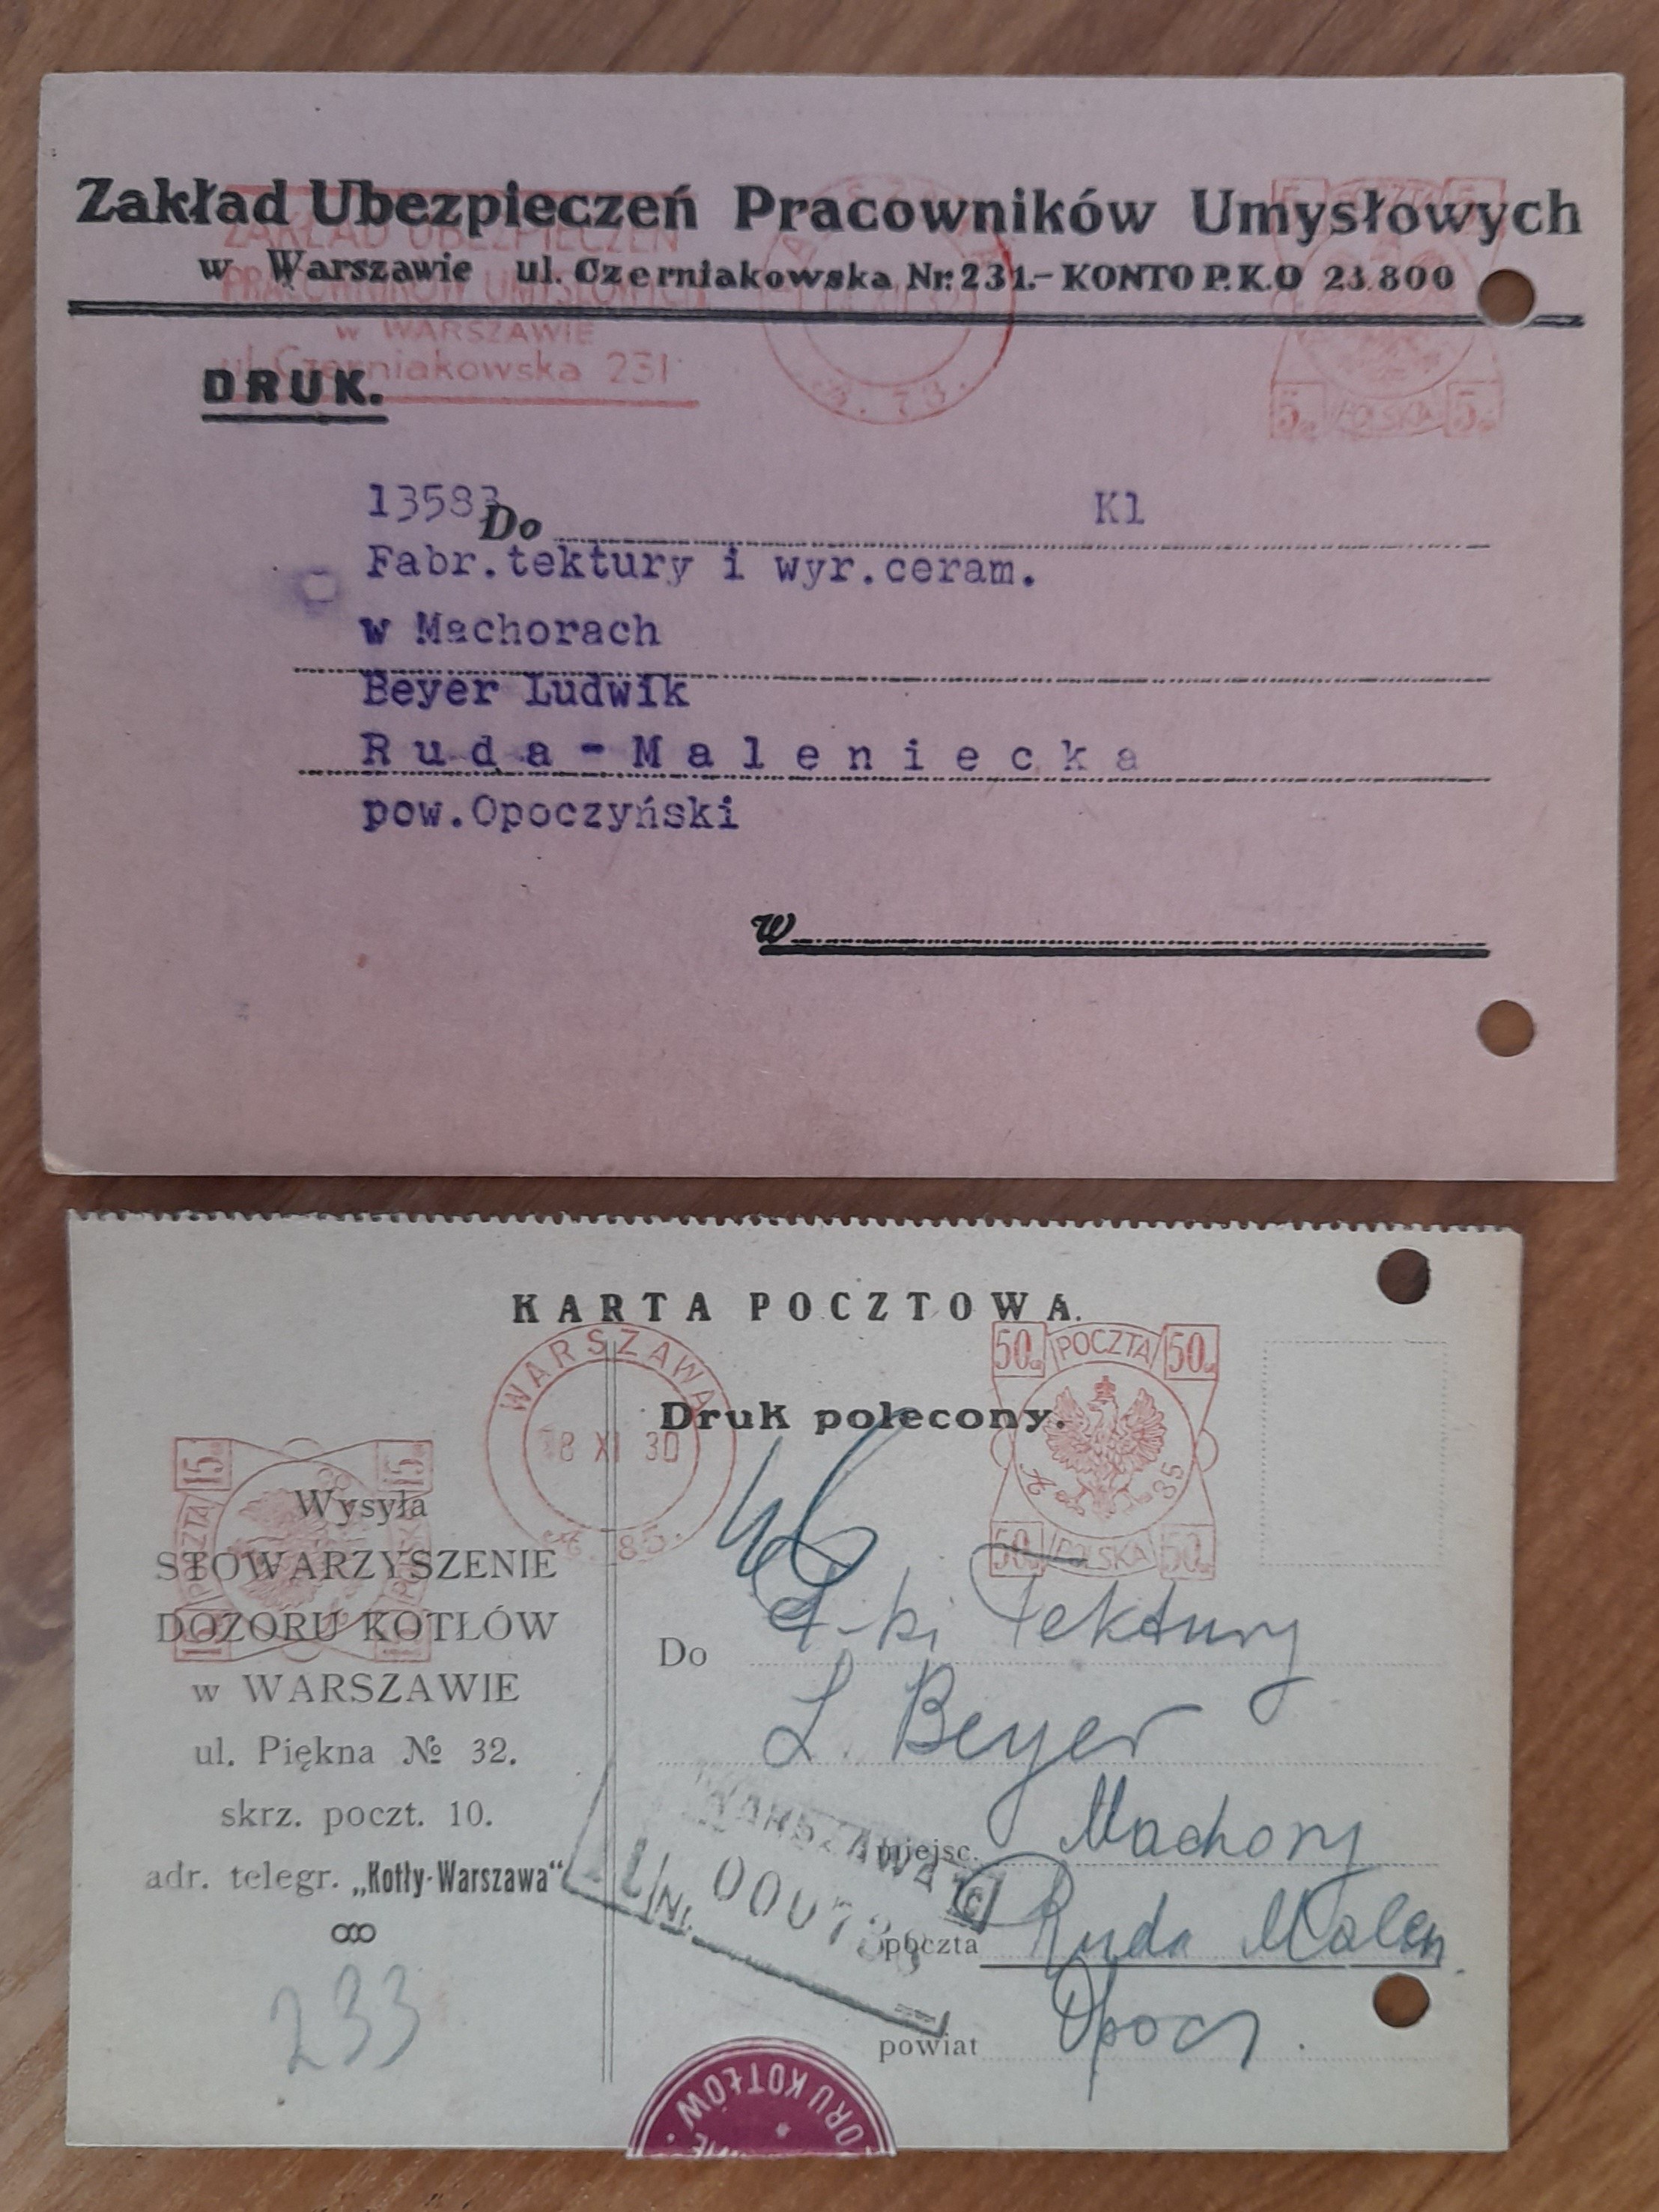 Zakład Ubezpieczeń Pracowników Umysłowych
w Warszawie ul. Czerniakowska Nr. 231.- KONTO P.K.O 23.800
ZAKŁAD UBEZPIECZEŃ
PRACOWNIKÓW UMYSŁOWYCH
w WARSZAWIE
ul. Czerniakowska 231
POCZTA
5 POLSKA 5
DRUK.
13583 Do Kl
Fabr.tektury i wyr.ceram.
w Machorach
Beyer Ludwik
Ruda-Maleniecka
pow.Opoczyński
w
KARTA POCZTOWA.
WARSZAWA
18 XI 30
85.
50 POCZTA 50
A 35
50 POLSKA 50
Druk polecony.
46
15 POCZTA 15
Wysyła
STOWARZYSZENIE
DOZORU KOTŁÓW
w WARSZAWIE
ul. Piękna № 32.
skrz. poczt. 10.
adr. telegr. „Kotły-Warszawa“
233
Do F-ki Tektury
L. Beyer
miejsc. Machory
poczta Ruda Malen.
powiat Opocz.
WARSZAWA 1
Nr.
ORU KOTŁÓW